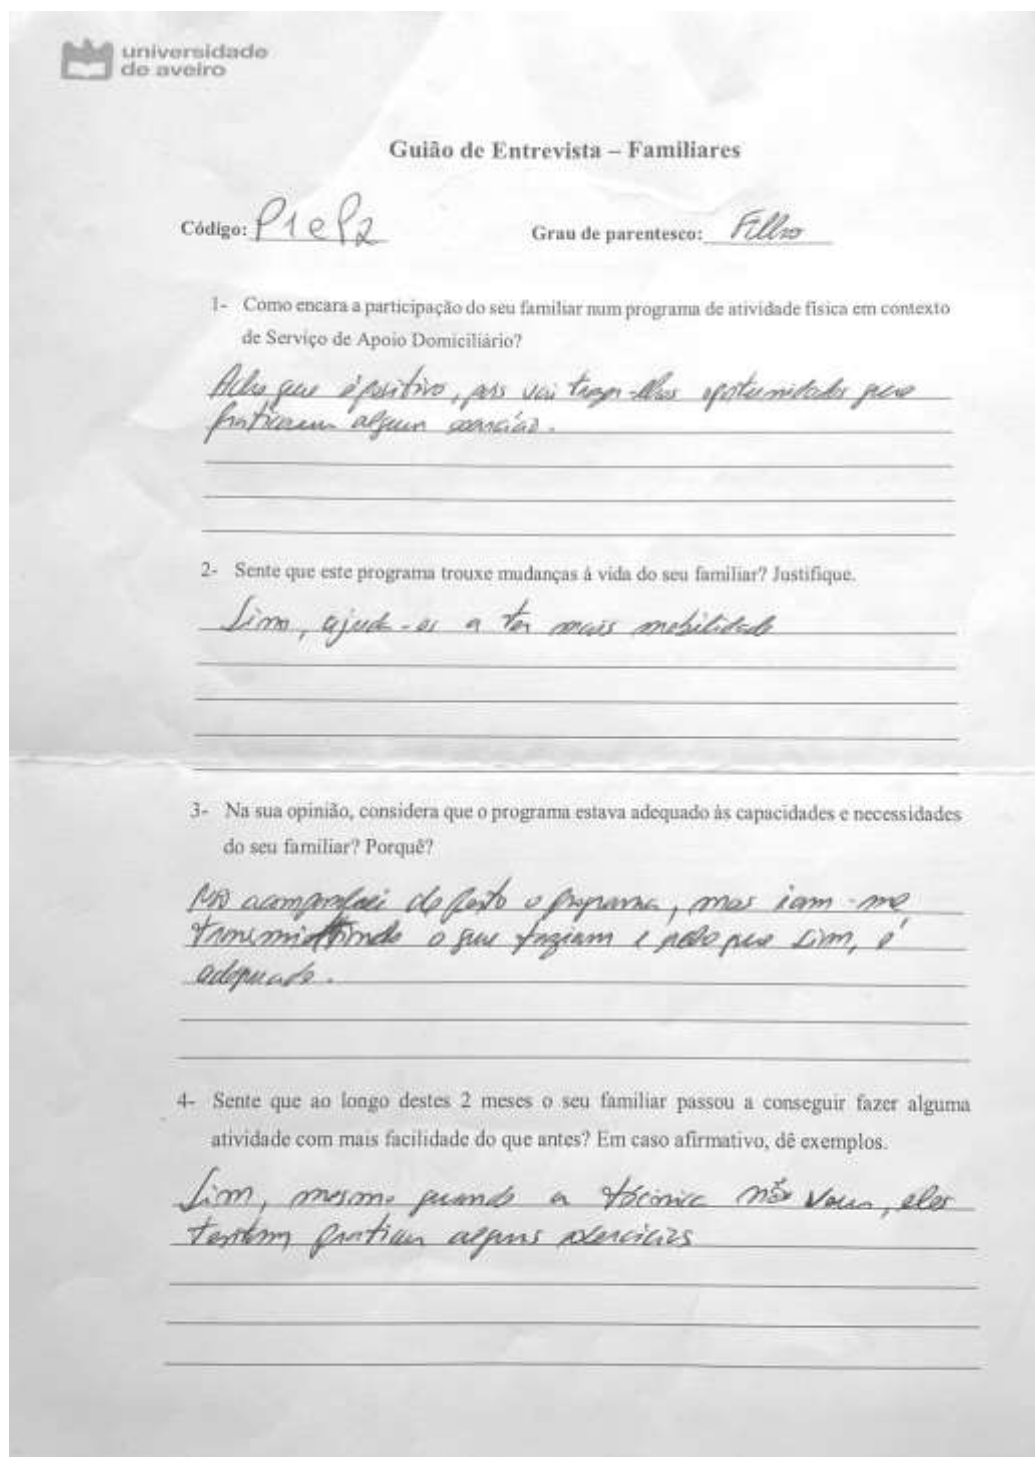 universidade
de aveiro
Guião de Entrevista – Familiares
Código: P1 e P2 Grau de parentesco: Filho
1- Como encara a participação do seu familiar num programa de atividade física em contexto
de Serviço de Apoio Domiciliário?
Acho que é positivo, pois vai trazer-lhes oportunidades para
praticarem algum exercício.
2- Sente que este programa trouxe mudanças à vida do seu familiar? Justifique.
Sim, ajuda-os a ter mais mobilidade
3- Na sua opinião, considera que o programa estava adequado às capacidades e necessidades
do seu familiar? Porquê?
Não acompanhei de perto o programa, mas iam-me
transmitindo o que faziam e pelo que sim, é
adequado.
4- Sente que ao longo destes 2 meses o seu familiar passou a conseguir fazer alguma
atividade com mais facilidade do que antes? Em caso afirmativo, dê exemplos.
Sim, mesmo quando a técnica não vem, eles
tentam praticar alguns exercícios